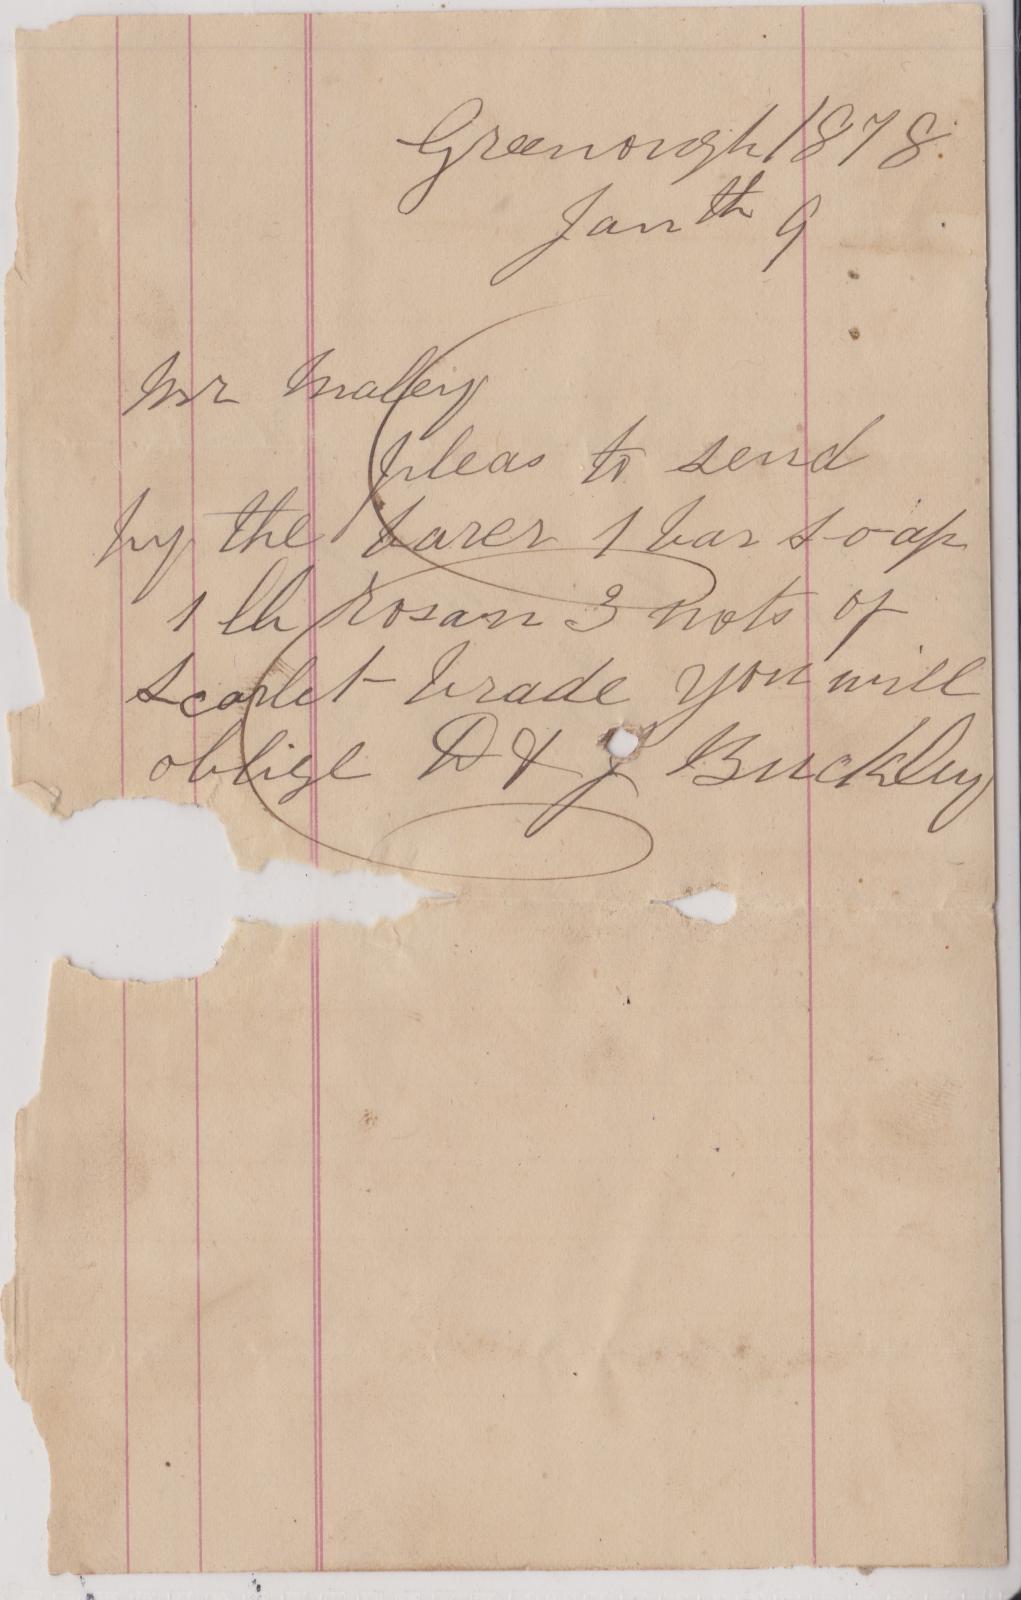 Greenough 1878
Jan th 9
Mr Maley
pleas to send
by the barer 1 bar soap
1 lb rosan 3 nots of
scarlet brade you will
oblige D & J Buckley